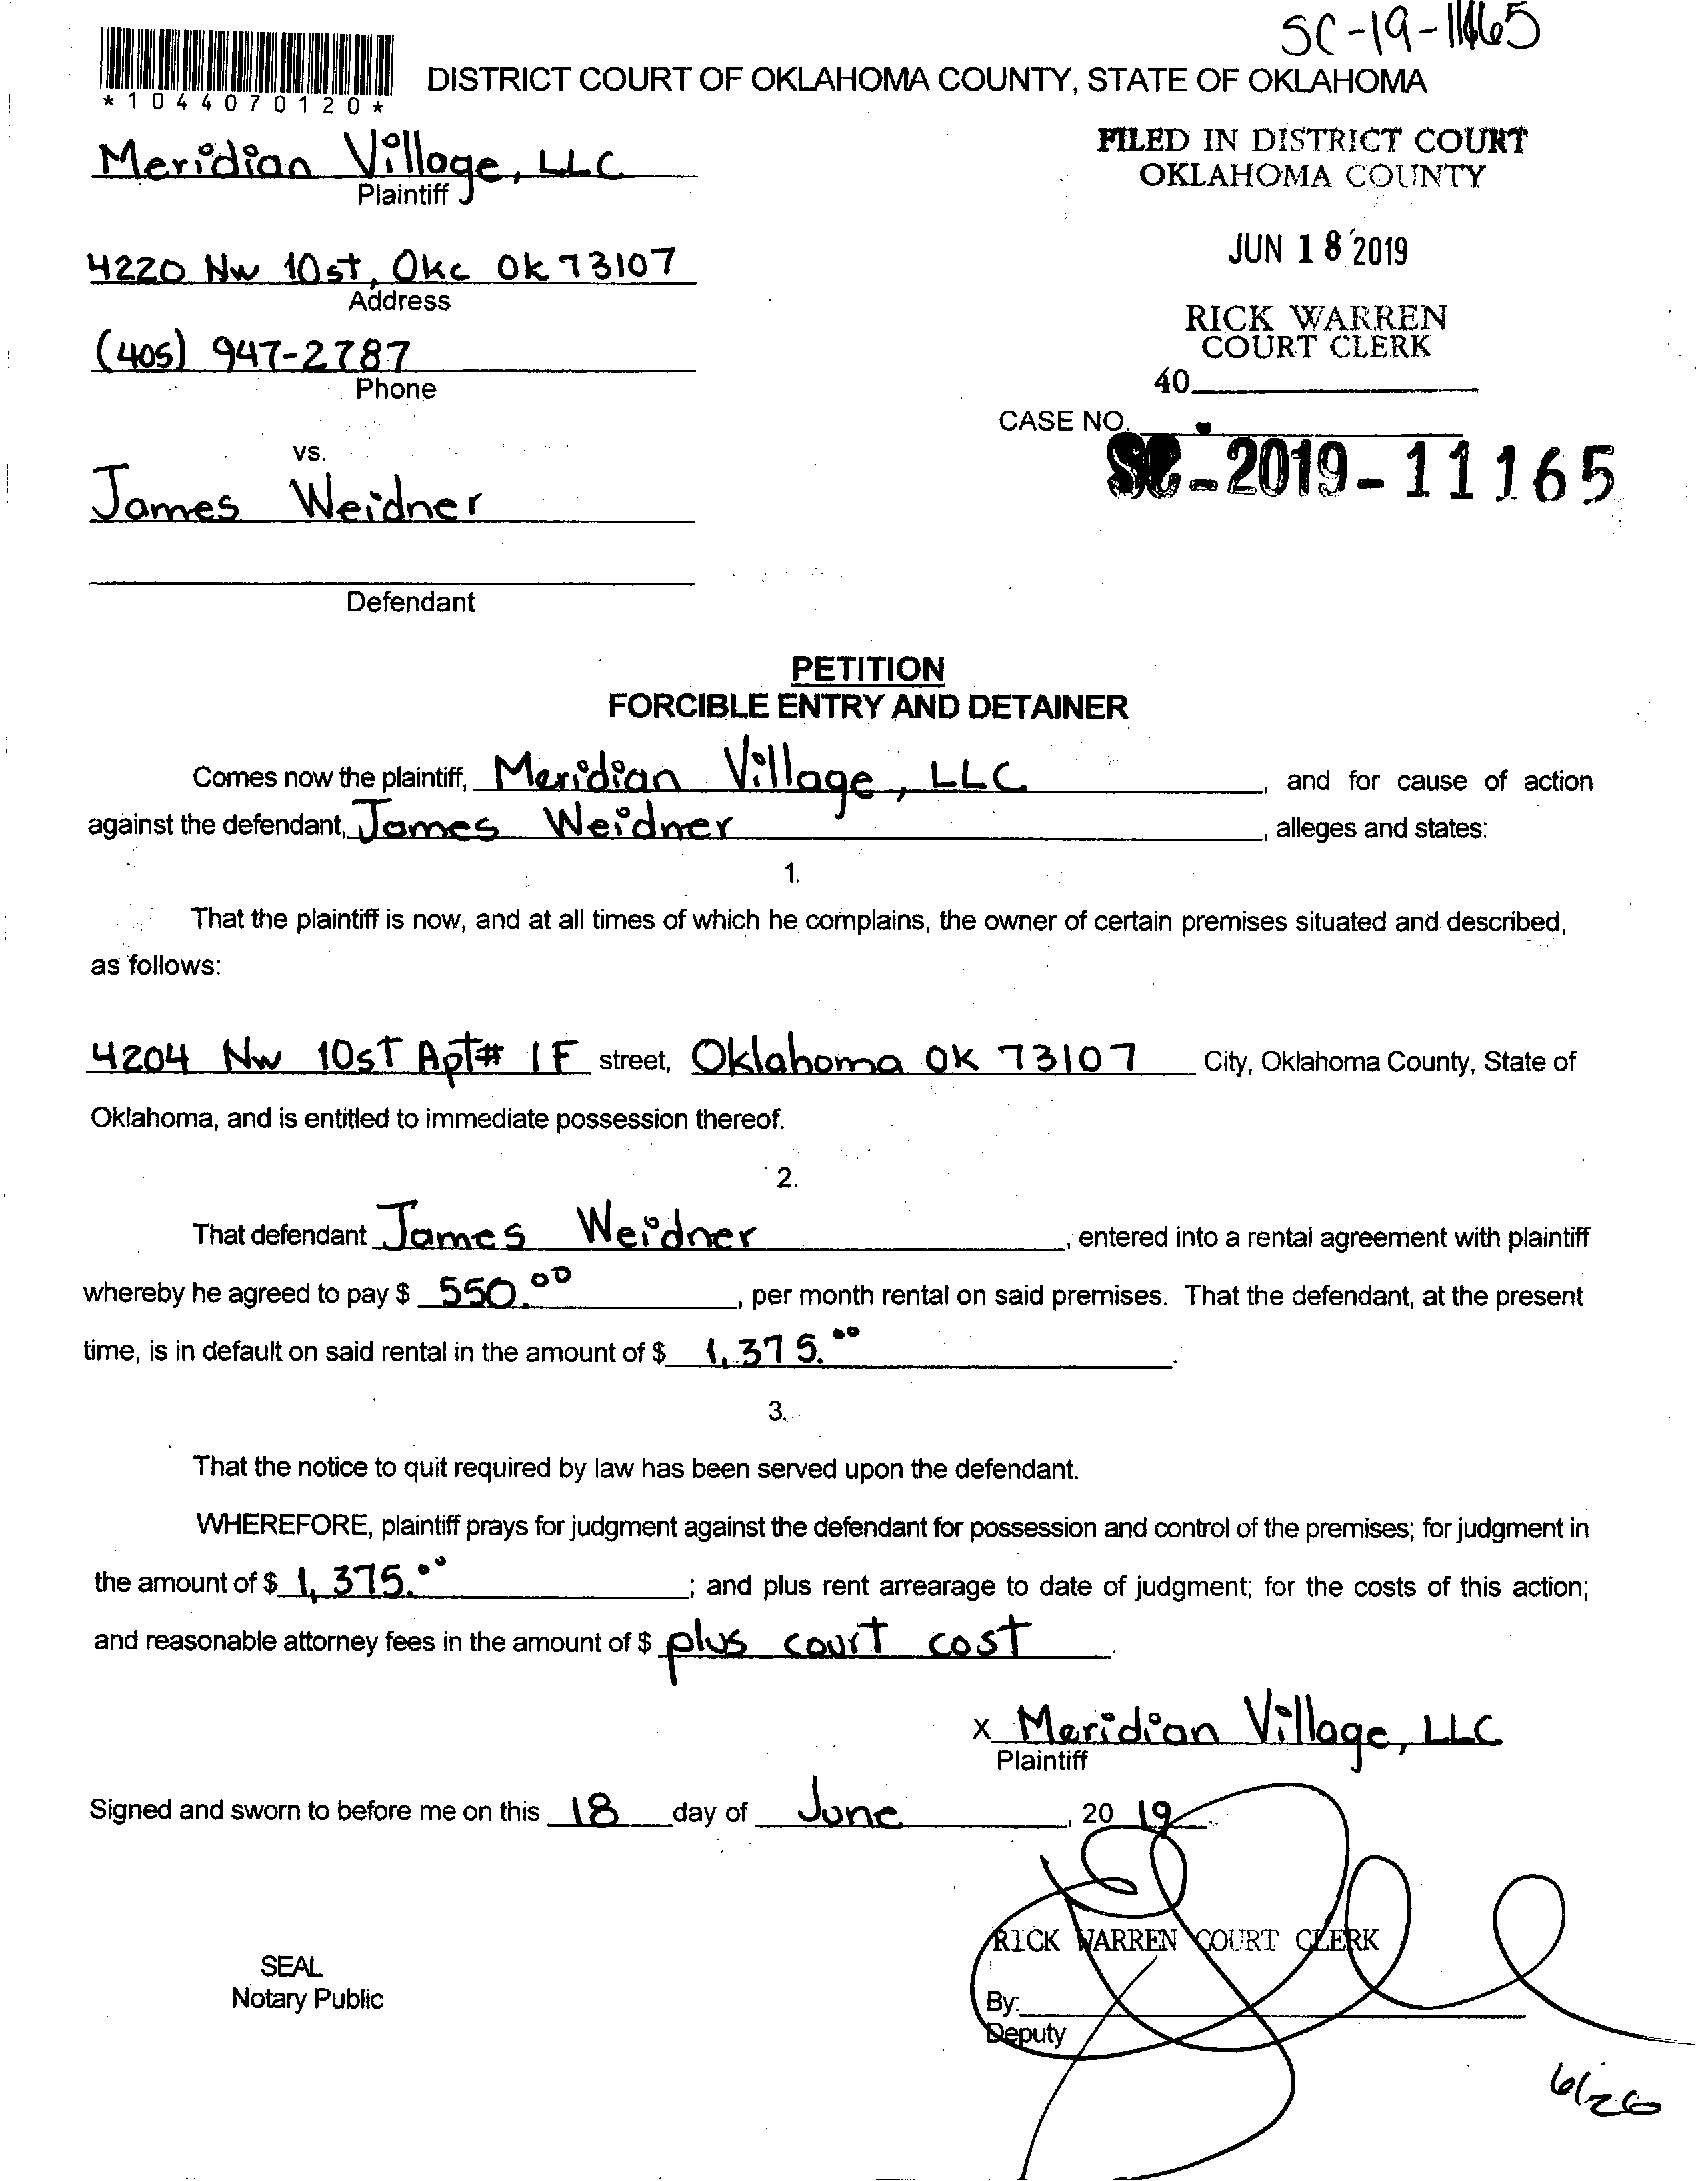 SC-19-11165
*1044070120*
DISTRICT COURT OF OKLAHOMA COUNTY, STATE OF OKLAHOMA
Meridian Village, LLC
Plaintiff
FILED IN DISTRICT COURT
OKLAHOMA COUNTY
JUN 18 2019
4220 NW 10st, OKC OK 73107
Address
RICK WARREN
COURT CLERK
(405) 947-2787
Phone
40
CASE NO.
SC-2019-11165
vs.
James Weidner
Defendant
PETITION
FORCIBLE ENTRY AND DETAINER
Comes now the plaintiff, Meridian Village, LLC, and for cause of action
against the defendant, James Weidner, alleges and states:
1.
That the plaintiff is now, and at all times of which he complains, the owner of certain premises situated and described,
as follows:
4204 NW 10sT Apt# 1F street, Oklahoma OK 73107 City, Oklahoma County, State of
Oklahoma, and is entitled to immediate possession thereof.
2.
That defendant James Weidner, entered into a rental agreement with plaintiff
whereby he agreed to pay $ 550.00, per month rental on said premises. That the defendant, at the present
time, is in default on said rental in the amount of $ 1,375.00.
3.
That the notice to quit required by law has been served upon the defendant.
WHEREFORE, plaintiff prays for judgment against the defendant for possession and control of the premises; for judgment in
the amount of $ 1,375.00; and plus rent arrearage to date of judgment; for the costs of this action;
and reasonable attorney fees in the amount of $ plus court cost.
X Meridian Village, LLC
Plaintiff
Signed and sworn to before me on this 18 day of June, 20 19
RICK WARREN COURT CLERK
SEAL
Notary Public
By:
Deputy
6/26